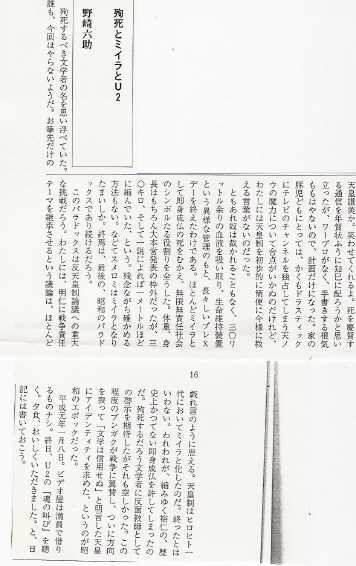 殉死とミイラとU2
野崎六助
殉死するべき文学者の名を思い浮べていた。
誰も、今回はやらないようだ。お筆先だけの
天皇讃美か。笑わせてくれるよ。死を慶賀す
る通信を年賀状ふうに知己に配ろうかと思い
立ったが、ワープロがなく、手書きする根気
ももはやないので、計画だけになった。家の
豚児どもにとっては、かくもドラスティック
にテレビのチャンネルを独占してしまう天ノ
ウの魔力について合点がいかぬのだけれど、
わたしには天皇制を初歩的に簡便に今様に教
える言葉がないのだった。
ともあれ奴は裁かれることもなく、三〇リ
ットル余りの血液を吸い取り、生命維持装置
という異様な管理のもと、長々しいプレX
デーを終えたわけである。ほとんどミイラと
して即身成仏の死をむかえ、無限無責任社会
のシンボルたる役割りを全うした。体重、身
長はもちろん大本営発表の枠外だったが、三
〇キロ、そして一説によれば一メートルほど
に縮んでいた、という。残念ながら確かめる
方法もない。などてスメロミはミイラとなり
たまいしか。終焉は、最後の、昭和のパラド
ックスであり続けるだろう。
このパラドックスは反天皇制論議への重大
な挑戦だろう。わたしには、明仁に戦争責任
テーマを継承させるという議論は、ほとんど
16
戯れ言のように思える。天皇制はヒロヒト一
代においてミイラと化したのだ。終ったとは
いわない。われわれが、縮みゆく裕仁の、歴
史上かつてない即身成仏を許してしまったの
だ。殉死するだろう文学者に反面教師として
の啓示を期待したがそれも空しかった。この
程度のブンガクが戦争に翼賛し、ついに方向
を喪って「文学は信用せぬ」と明言した天皇
にアイデンティティを求めた、というのが昭
和のエポックだった。
平成元年一月八日。ビデオ屋は満員で借り
るものナシ。終日、U2の『魂の叫び』を聴
く。夕食、おいしくいただきました。と、日
記には書いておこう。